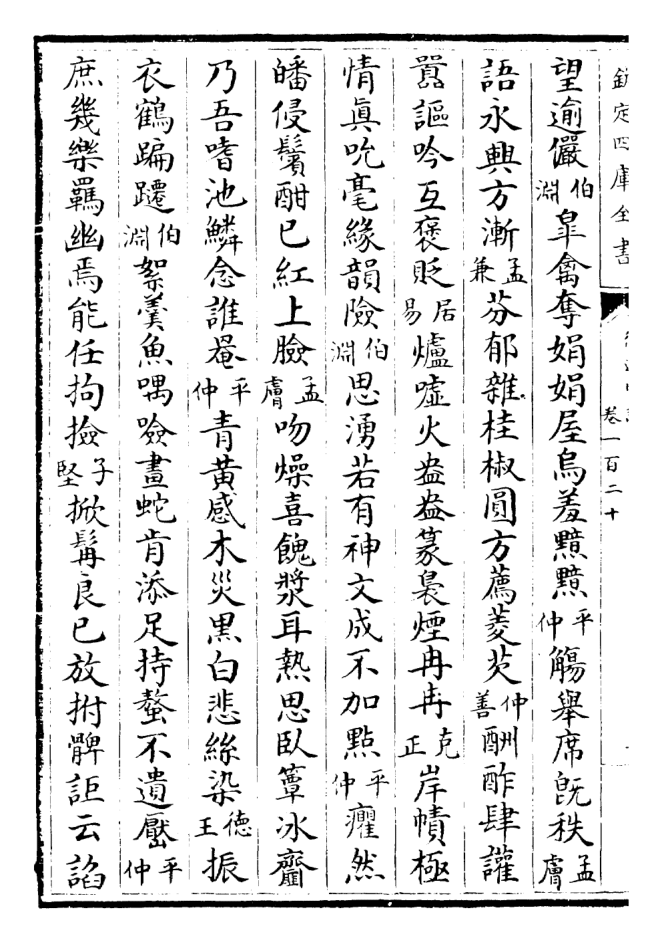 欽定四庫全書 卷一百二十
望逾儼伯淵皐禽奪娟娟屋烏羞平仲觴舉席旣秩孟膚
語永興方漸孟兼芬郁雜桂椒圓方薦菱芡仲善酬酢肆讙
嚣謳吟互褒貶居易爐嘘火盎盎篆裊煙冉冉克正岸幘極
情眞吮毫緣韻險伯淵思湧若有神文成不加點平仲癯然
皤侵鬢酣已紅上臉孟膚吻燥喜餽漿耳熱思臥簟冰齏
乃吾嗜池鱗念誰罨平仲青黄感木災黒白悲絲染德王振
衣鶴蹁躚伯淵絮羮魚喁噞畫蛇肯添足持螯不遺壓平仲
庶幾樂羈幽焉能任拘撿子堅掀髯良已放拊髀詎云諂